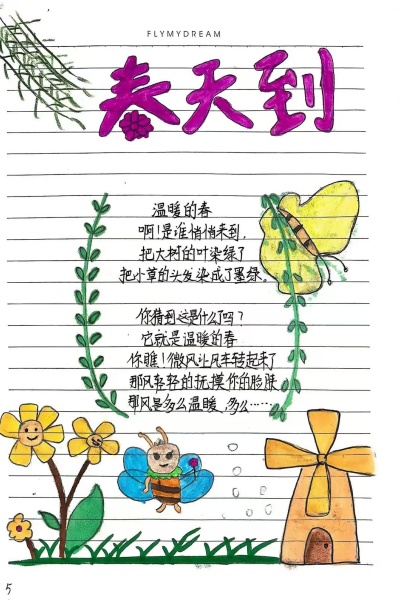 FLYMYDREAM
春天到
温暖的春
啊!是谁悄悄来到,
把大树的叶染绿了
把小草的头发染成了墨绿。
你猜到这是什么了吗?
它就是温暖的春
你瞧!微风让风车转起来了
那风轻轻的抚摸你的脸颊
那风是多么温暖,多么……
5